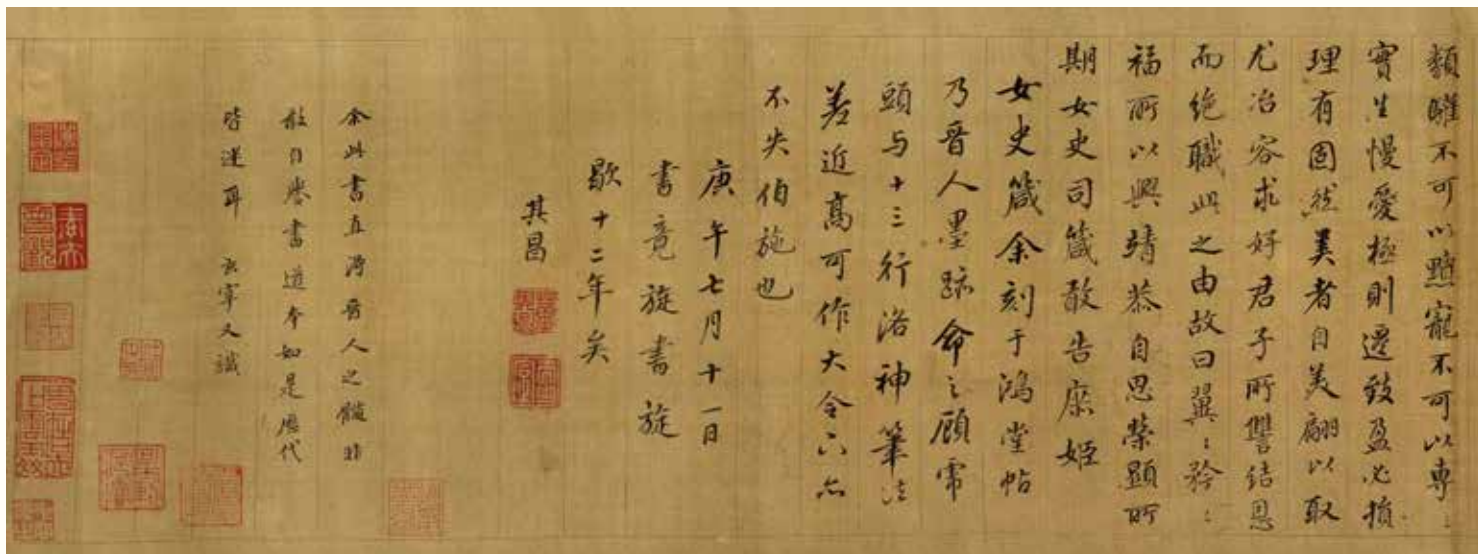 類驩不可以黷寵不可以専〻
實生慢愛極則遷致盈必損
理有固然美者自美翩以取
尤冶容求好君子所讐結恩
而絕職此之由故曰翼〻矜〻
福所以興靖恭自思榮顯所
期女史司箴敢告庶姬
女史箴余刻于鴻堂帖
乃晉人墨跡命之顧常
頭与十三行洛神筆法
差近高可作大令下亦
不失伯施也
庚午七月十一日
書竟旋書旋
歇十二年矣
其昌
余此書直得晉人之髓非
敢自譽書道本如是歷代
皆迷耳 玄宰又識